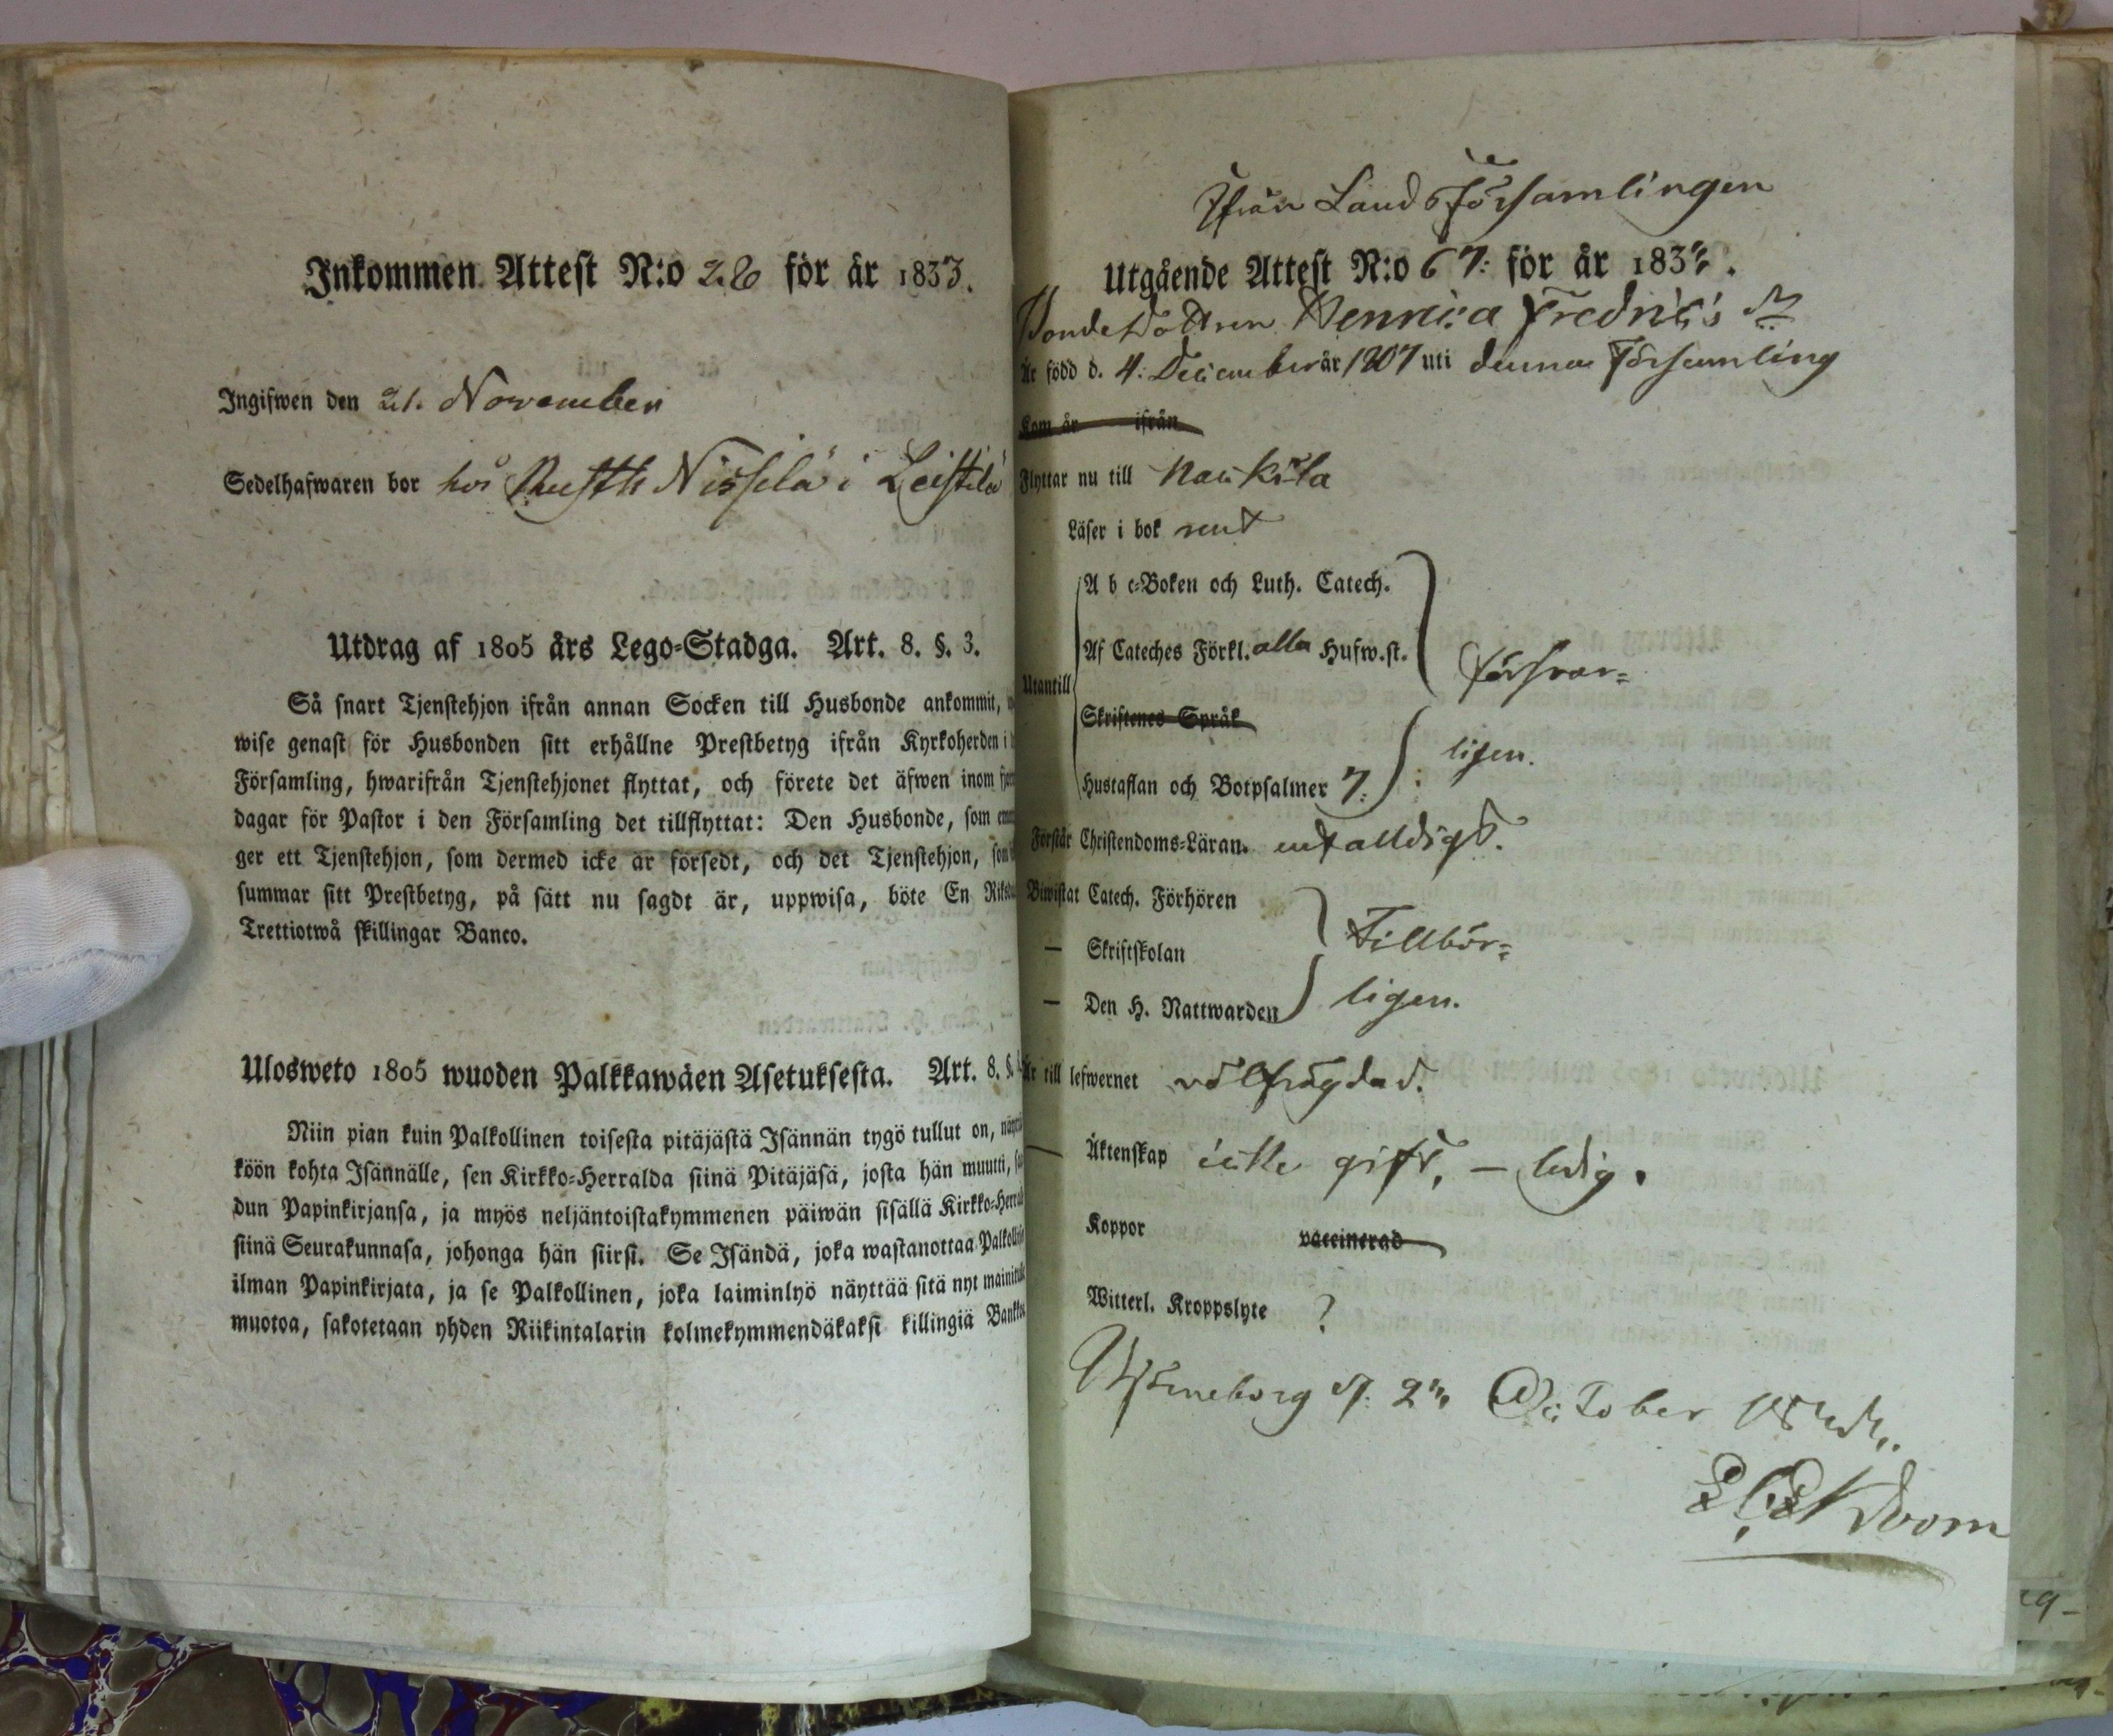 Inkommen Attest N:o 26 för år 1833.
Ingifwen den 21. November
Sedelhafwaren bor hos Rusth Nissilä i Leistilä
Utdrag af 1805 års Lego-Stadga. Art. 8. §. 3.
Så snart Tjenstehjon ifrån annan Socken till Husbonde ankommit,
wise genast för Husbonden sitt erhållne Prestbetyg ifrån Kyrkoherden i
Församling, hwarifrån Tjenstehjonet flyttat, och förete det äfwen inom
dagar för Pastor i den Församling det tillflyttat: Den Husbonde, som
ger ett Tjenstehjon, som dermed icke är försedt, och det Tjenstehjon,
summar sitt Prestbetyg, på sätt nu sagdt är, uppwisa, böte En
Trettiotwå skillingar Banco.
Ulosweto 1805 wuoden Palkkawäen Asetuksesta. Art. 8. §.
Niin pian kuin Palkollinen toisesta pitäjästä Isännän tygö tullut on,
köön kohta Isännälle, sen Kirkko-Herralda siinä Pitäjäsä, josta hän muutti,
dun Papinkirjansa, ja myös neljäntoistakymmenen päiwän sisällä
siinä Seurakunnasa, johonga hän siirsi. Se Isändä, joka wastanottaa
ilman Papinkirjata, ja se Palkollinen, joka laiminlyö näyttää sitä nyt
muotoa, sakotetaan yhden Riikintalarin kolmekymmendäkaksi killingiä
Ifrån Landsförsamlingen
Utgående Attest N:o 67: för år 183
Bondedottren Henrica Fredrics dr
Är född d. 4. December år 1807 uti denna Församling
Kom år ifrån
Flyttar nu till Nackila
Läser i bok rent
Utantill
A b c-Boken och Luth. Catech.
Af Cateches Förkl. alla Hufw.st.
Försvar-
Skriftenes Språk
ligen.
Hustaflan och Botpsalmer 7:
Förstår Christendoms-Läran. enfalldigt.
Biwistat Catech. Förhören
— Skriftskolan Tillbör-
— Den H. Nattwarden ligen.
Är till lefwernet välfrägdad.
— Äktenskap icke gift, — ledig.
Koppor vaccinerad
Witterl. Kroppslyte ?
Björneborg d. October